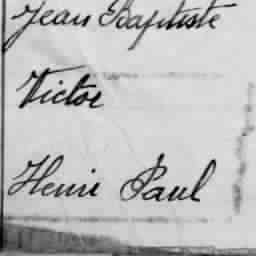 Jean Baptiste
Victor
Henri Paul